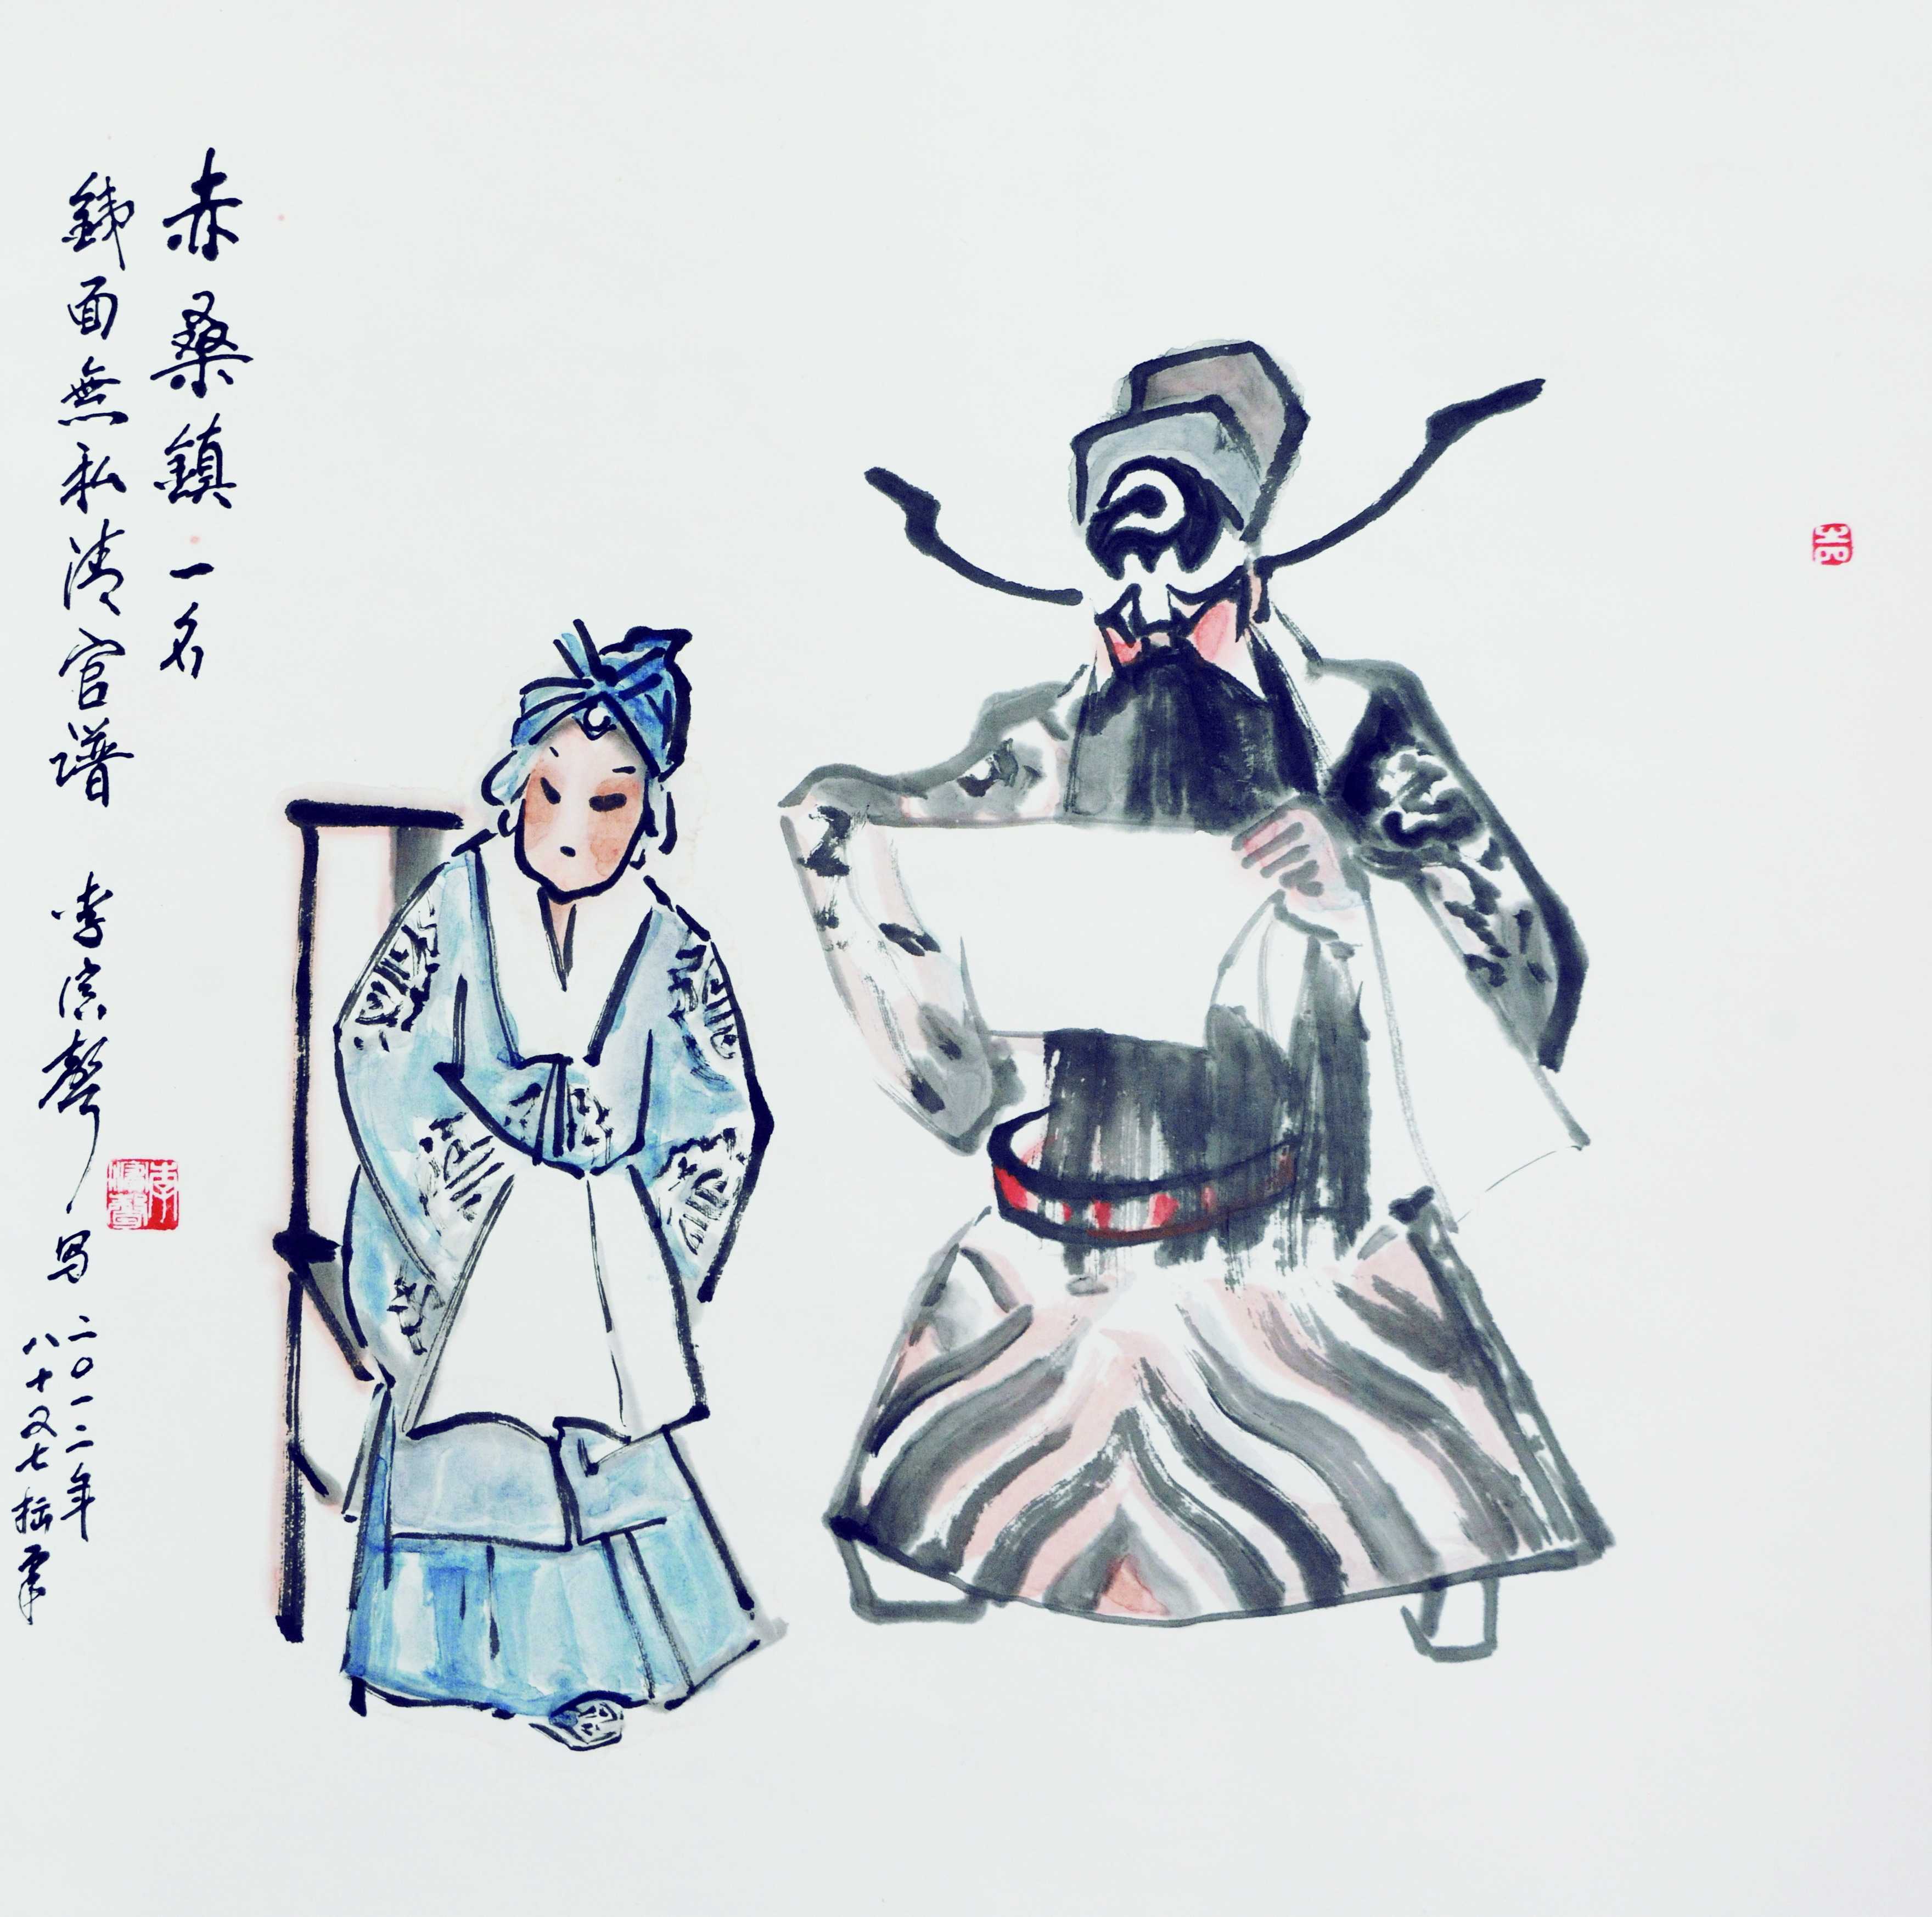 赤桑鎮一名
鉄面無私清官譜 李宗聲写
二〇一二年
八十又七拙筆